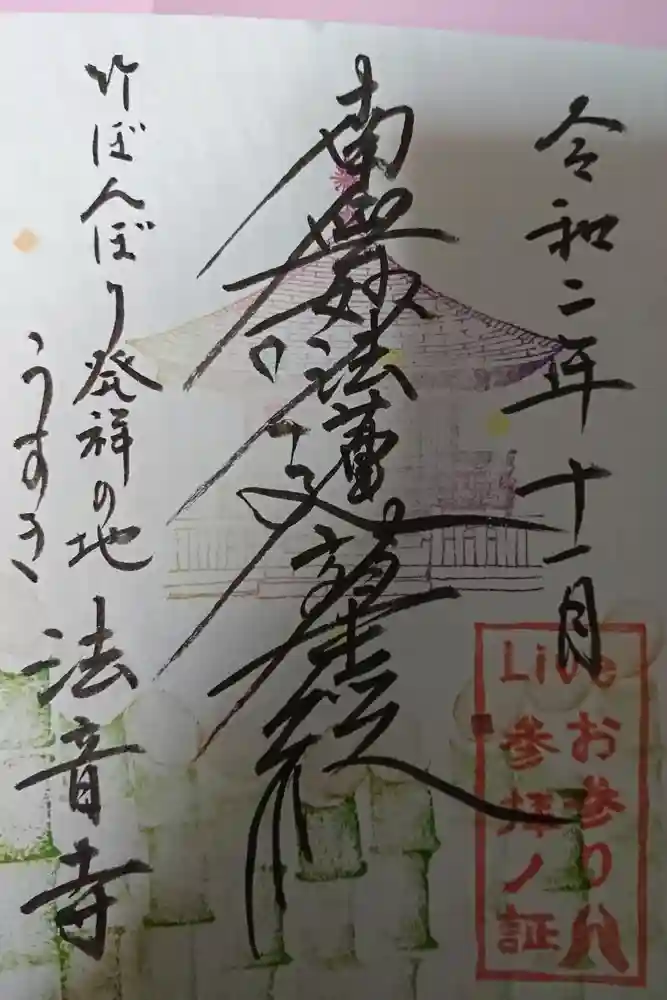 令和二年十一月
Live
お参り八
参拝ノ証
南無妙法蓮華経
竹ぼんぼり発祥の地
うすき
法音寺